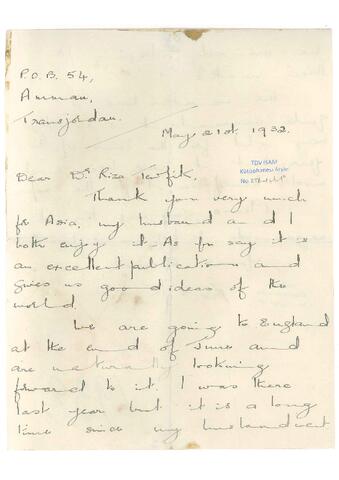 P.O.B. 54,
Amman,
Transjordan.
May 21st. 1932.
Dear Dr. Riza Tewfik.
TDV İSAM
Kütüphanesi Arşivi
No
Thank you very much
for Asia, my husband and I
both enjoy it. As you say it is
an excellent publication and
gives us good ideas of the
world.
We are going to England
at the end of June and
are naturally looking
forward to it. I was there
last year but it is a long
time since my husband